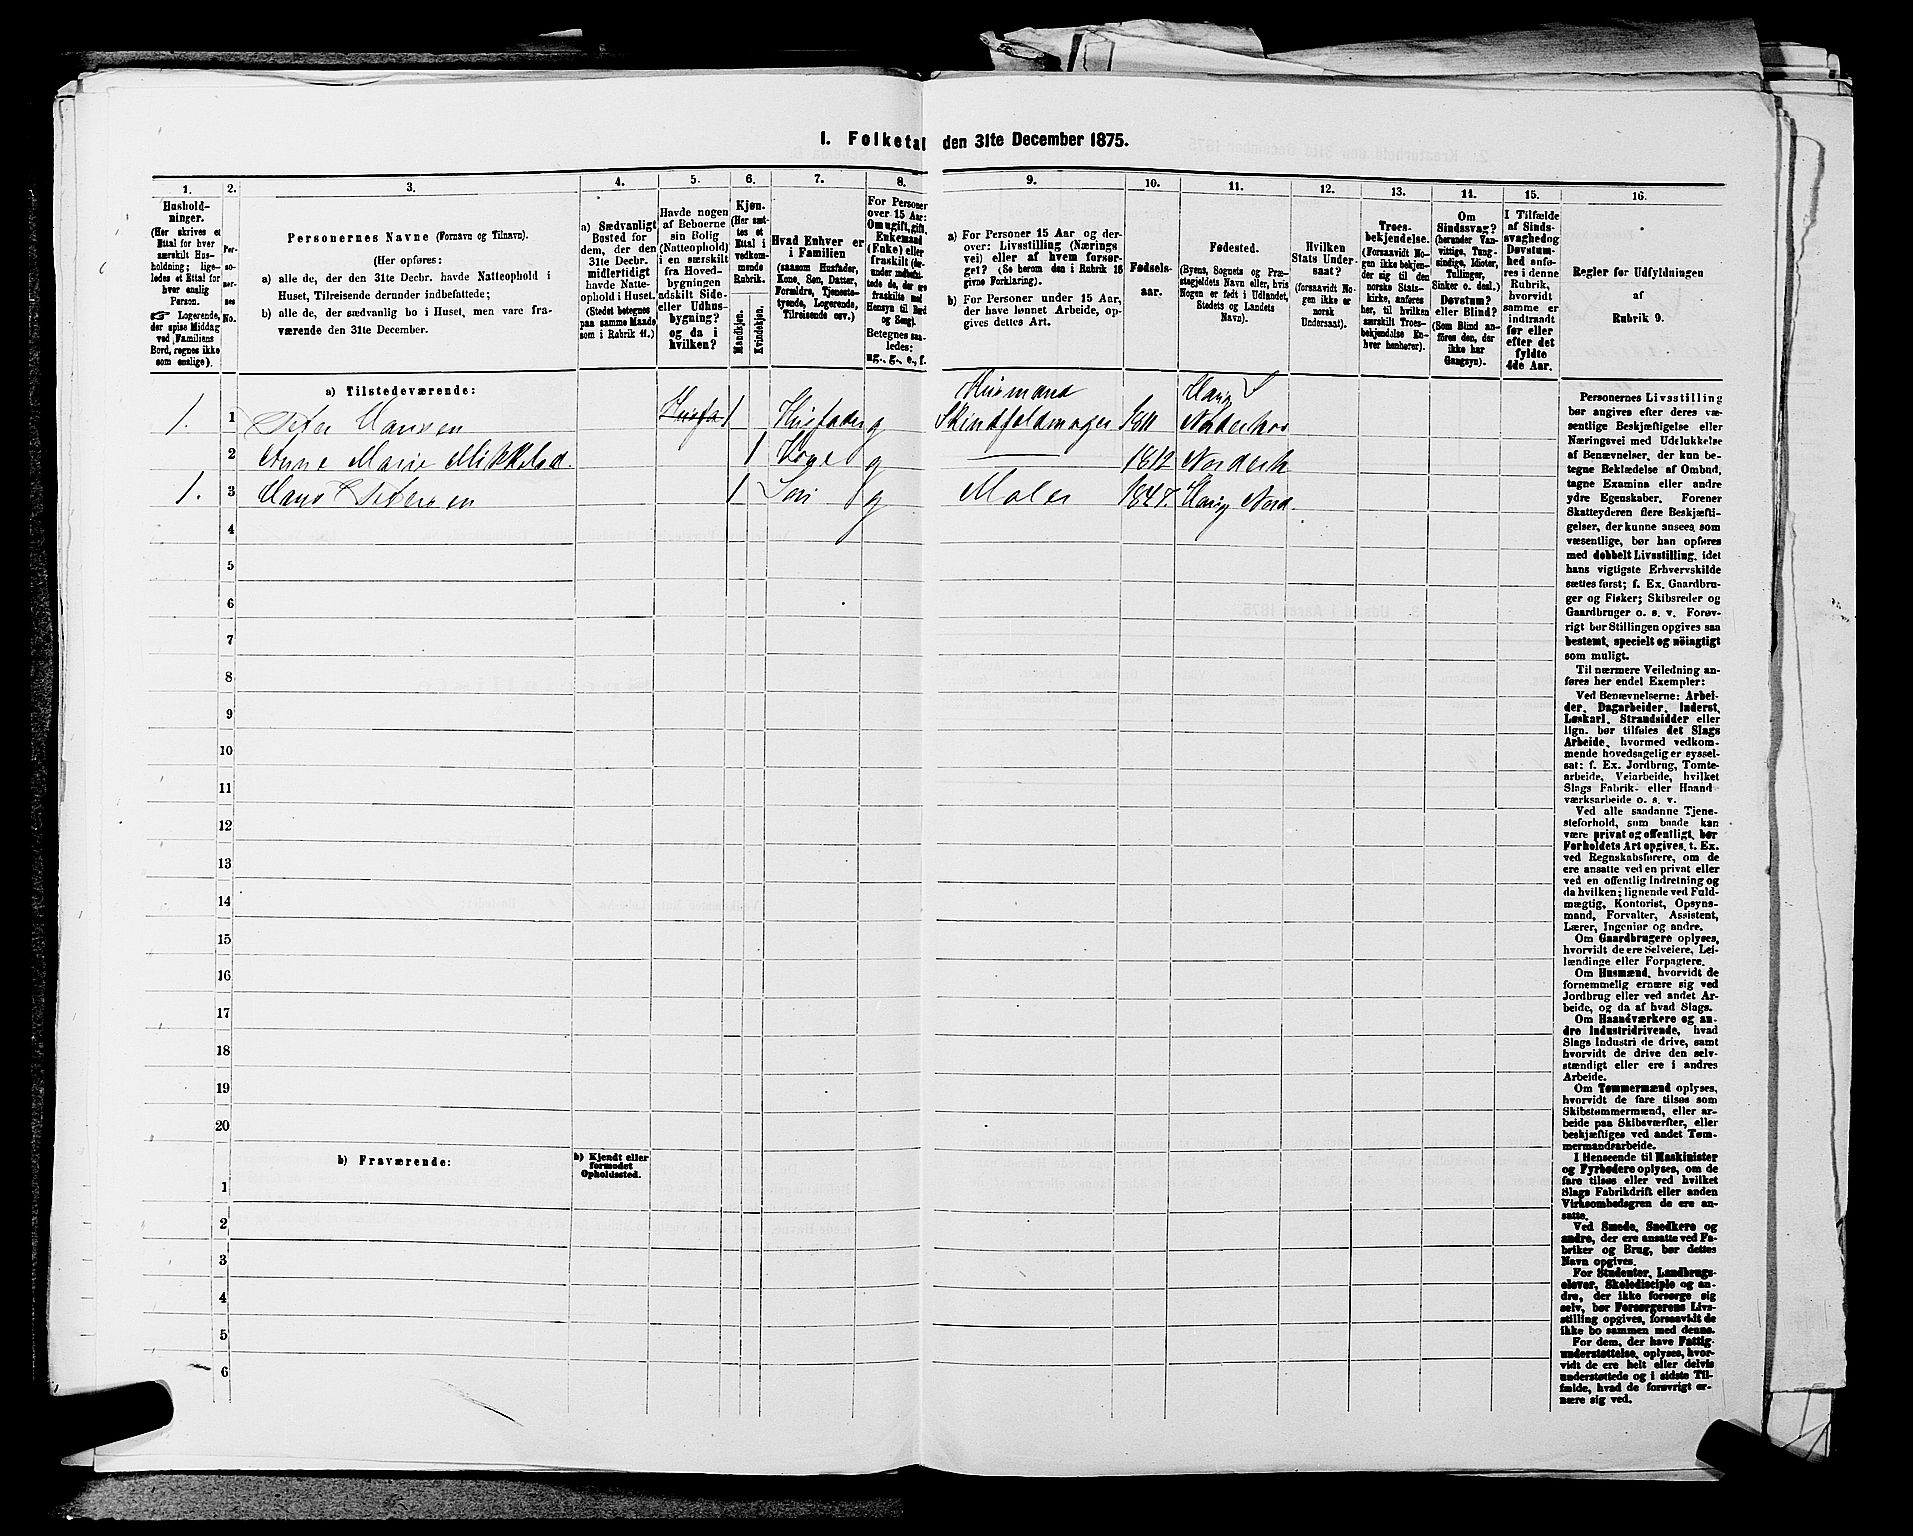 1. Folketal den 31te December 1875.
1.
2.
3.
4.
5.
6.
7.
8.
9.
10.
11.
12.
13.
14.
15.
16.
Hushold-
ninger.
(Her skrives et
Ettal for hver
særskilt Hus-
holdning; lige-
ledes et Ettal for
hver enslig
Person.
☞ Logerende,
der spise Middag
ved Familiens
Bord, regnes ikke
som enslige).
Per-
so-
ner-
nes
No.
Personernes Navne (Fornavn og Tilnavn).
(Her opføres:
a) alle de, der den 31te Decbr. havde Natteophold i
Huset, Tilreisende derunder indbefattede;
b) alle de, der sædvanlig bo i Huset, men vare fra-
værende den 31te December.
a) Sædvanligt
Bosted for
dem, der den
31te Decbr.
midlertidigt
havde Natte-
ophold i Huset.
(Stedet betegnes
paa samme Maade
som i Rubrik 11.)
Havde nogen
af Beboerne
sin Bolig
(Natteophold)
i en særskilt
fra Hoved-
bygningen
adskilt Side-
eller Udhus-
bygning?
og da i
hvilken?
Kjøn.
(Her sæt-
tes et
Ettal i
vedkom-
mende
Rubrik.
Mandkjøn.
Kvindekjøn.
Hvad Enhver er
i Familien
(saasom Husfader,
Kone, Søn, Datter,
Forældre, Tjeneste-
tyende, Logerende,
Tilreisende osv.)
For Personer
over 15 Aar:
Om ugift, gift,
Enkemand
(Enke) eller
fraskilt
Betegnes saa-
ledes:
ug., g., e., f.
a) For Personer 15 Aar og der-
over: Livsstilling (Nærings
vei) eller af hvem forsør-
get? (Se herom den i Rubrik 16
givne Forklaring).
b) For Personer under 15 Aar,
der have lønnet Arbeide, op-
gives dettes Art.
Fødsels-
aar.
Fødested.
(Byens, Sognets og Præ-
stegjeldets Navn eller, hvis
Nogen er født i Udlandet,
Stedets og Landets
Navn).
Hvilken
Stats Under-
saat?
(forsaavidt No-
gen ikke er
norsk
Undersaat).
Troes-
bekjendelse.
(Forsaavidt No-
gen ikke bekjen-
der sig til den
norske Stats-
kirke, anføres
her, til hvilken
særskilt Troes-
bekjendelse En-
hver henhører).
Om
Sindssvag?
(herunder Van-
vittige, Tung-
sindige, Idioter,
Tullinger,
Sinker o. desl.)
Døvstum?
eller Blind?
(Som Blind an-
føres den, der
ikke har
Gangsyn).
I Tilfælde
af Sinds-
svaghed og
Døvstum-
hed anfø-
res i denne
Rubrik,
hvorvidt
samme er
indtraadt
før eller
efter det
fyldte
4de Aar.
Regler før Udfyldningen
af
Rubrik 9.
a) Tilstedeværende:
1. 1 Peter Hansen Husfa 1 Husfader g Husmand Skindfeldmager 1811 Haug Norderhov
2 Anne Marie Mikkelsd. 1 Kone g 1812 Norderh
1. 3 Hans Petersen 1 Søn g Maler 1847. Haug Nord.
4
5
6
7
8
9
10
11
12
13
14
15
16
17
18
19
20
b) Fraværende:
b) Kjendt eller
formodet
Opholdssted.
1
2
3
4
5
6
Personernes Livsstilling
bør angives efter deres væ-
sentlige Beskjæftigelse eller
Næringsvei med Udelukkelse
af Benævnelser, der kun be-
tegne Beklædelse af Ombud,
tagne Examina eller andre
ydre Egenskaber. Forener
Skatteyderen flere Beskjæfti-
gelser, der kunne ansees som
væsentlige, bør han opføres
med dobbelt Livsstilling, idet
hans vigtigste Erhvervskilde
sættes først; f. Ex. Gaardbru-
ger og Fisker; Skibsreder og
Gaardbruger o. s. v. Forøv-
rigt bør Stillingen opgives saa
bestemt, specielt og nöiagtigt
som muligt.
Til nærmere Veiledning an-
føres her endel Exempler:
Ved Benævnelserne: Arbei-
der, Dagarbeider, Inderst,
Løskarl, Strandsidder eller
lign. bør tilføies det Slags
Arbeide, hvormed vedkom-
mende hovedsagelig er syssel-
sat; f. Ex. Jordbrug, Tomte-
arbeide, Veiarbeide, hvilket
Slags Fabrik- eller Haand
værksarbeide o. s. v.
Ved alle saadanne Tjene-
steforhold, som baade kan
være privat og offentligt, bør
Forholdets Art opgives, t. Ex.
ved Regnskabsførere, om de
ere ansatte ved en privat eller
ved en offentlig Indretning og
da hvilken; lignende ved Fuld-
mægtig, Kontorist, Opsyns-
mand, Forvalter, Assistent,
Lærer, Ingeniør og andre.
Om Gaardbrugere oplyses,
hvorvidt de ere Selveiere, Lei-
lændinge eller Forpagtere.
Om Husmænd, hvorvidt de
fornemmelig ernære sig ved
Jordbrug eller ved andet Ar-
beide, og da af hvad Slags.
Om Haandværkere og an-
dre Industridrivende, hvad
Slags Industri de drive, samt
hvorvidt de drive den selv-
stændigt eller ere i andres
Arbeide.
Om Tømmermænd oplyses,
hvorvidt de fare tilsøs som
Skibstømmermænd, eller ar-
beide paa Skibsværfter, eller
beskjæftiges ved andet Tøm-
mermandsarbeide.
I Henseende til Maskinister
og Fyrbødere oplyses, om de
fare tilsøs eller ved hvilket
Slags Fabrikdrift eller anden
Virksomhedsgren de ere an-
satte.
Ved Smede, Snedkere og
andre, der ere ansatte ved Fa-
briker og Brug, bør dettes
Navn opgives.
For Studenter, Landbrugs-
elever, Skoledisciple og an-
dre, der ikke forsørge sig
selv, bør Forsørgerens Livs-
stilling opgives, forsaavidt de
ikke bo sammen med denne.
For dem, der have Fattig-
understøttelse, oplyses, hvor-
vidt de ere helt eller delvis
understøttede og i sidste Til-
fælde, hvad de forøvrigt er-
nære sig ved.